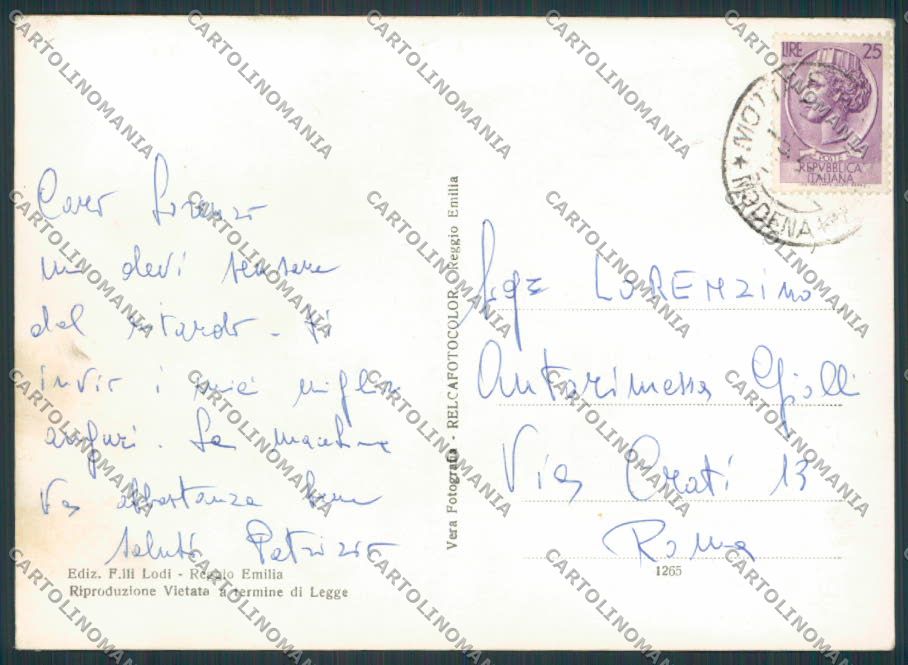 Caro Lorenzo
mi devi scusare
del ritardo - ti
invio i miei migliori
auguri. La macchina
va abbastanza bene
saluti Patrizio
Ediz. F.lli Lodi - Reggio Emilia
Riproduzione Vietata a termine di Legge
Vera Fotografia - RELCAFOTOCOLOR - Reggio Emilia
LIRE 25
POSTE
REPVBBLICA
ITALIANA
MODENA
LORENZino
Autorimessa Giolli
Via Crati 13
Roma
1265
CARTOLINOMANIA